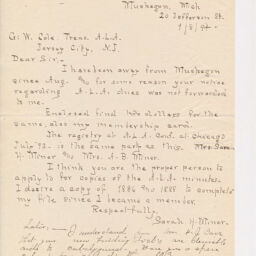 Muskegon, Mich
20 Jefferson St.
9/8/94
G. W. Cole: Treas. A.L.A.
Jersey City, N.J.
Dear Sir:-
I have been away from Muskegon
since Aug. for some reason your notice
regarding A.L.A. dues was not forwarded
to me.
Enclosed find two dollars for the
same, also my membership card.
The registry at A.L.A. Conf. at Chicago
July '93 is the same party as this. Mrs. Sarah
H. Miner and Mrs. A. B. Miner.
I think you are the proper person to
apply to for copies of the A.L.A. minutes.
I desire a copy of 1886 and 1888 to complete
my file since I became a member.
Respectfully,
Sarah H. Miner.
Later:- I understand